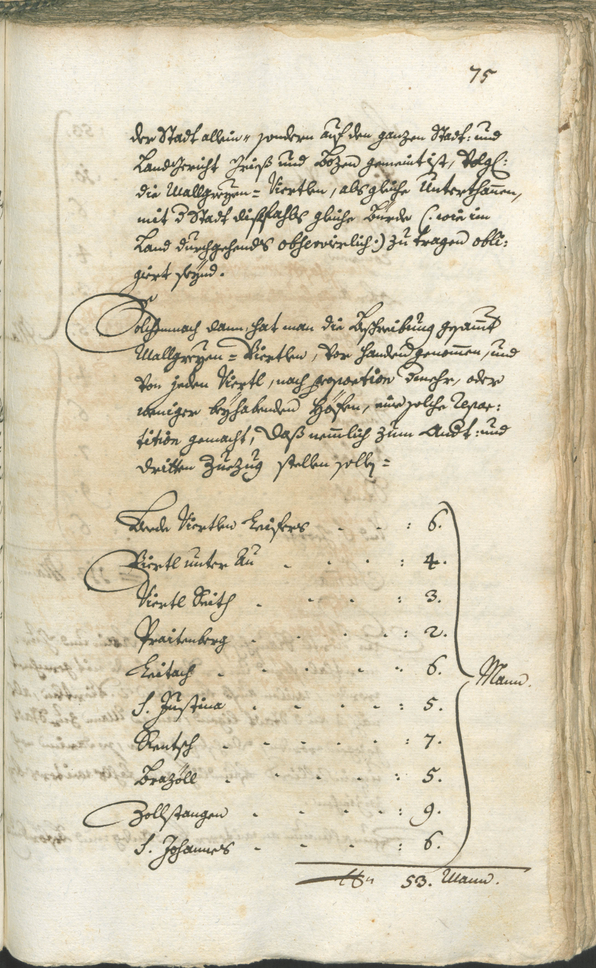 75
der Stadt allein, sondern auf den ganzen Stadt: und
Landtgericht Grieß und Bozen gemeint ist, volgl:
die Mallgreyen= Viertlen, als gleiche Unterthannen,
mit d Stadt dißfahls gleiche Bürde (: wie im
Land durchgehends observierlich :) zu tragen obli:
giert seynd.
Solchemnach dann, hat man die Beschreibung gesamt
Mallgreyen= Viertlen, vor handen genommen, und
von jeden Viertl, nach proportion mehr, oder
weniger beyhabenden Höfen, eine solche Repar:
tition gemacht, daß nemlich zum Andt: und
dritten Zuezug stellen solle=
Beede Viertlen Leifers - - : 6.
Viertl unter Au - - - : 4.
Viertl Seith - - - : 3.
Praitenberg - - - : 2.
Leitach - - - : 6.
S. Justina - - - : 5.
Rentsch - - - : 7.
Brazöll - - - : 5.
Zollstangen - - - : 9.
S. Johannes - - - : 6.
Mann.
53. Mann.